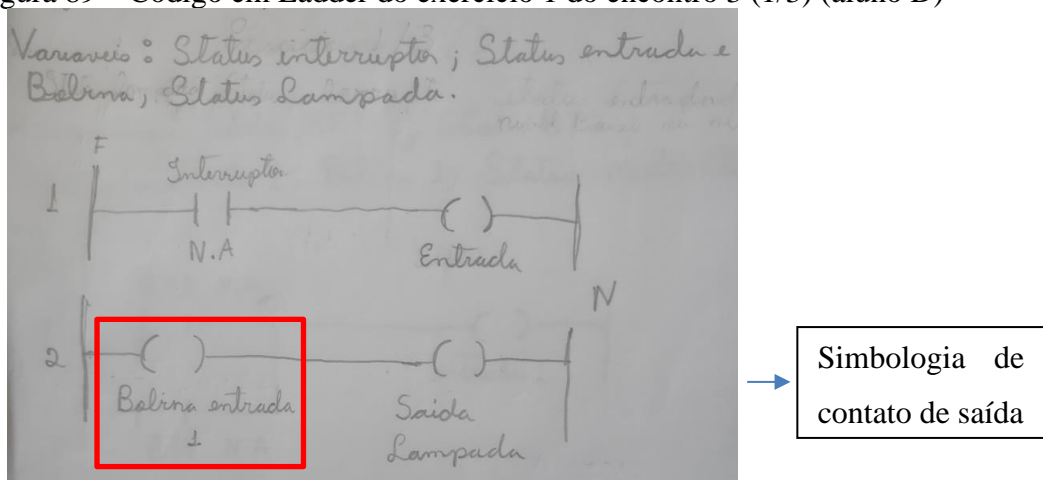 Código em Ladder do exercício 1 do encontro 3 (1/3) (aluno B)
Variaveis: Status interruptor; Status entrada e
Bobina, Status Lampada.
F
Interruptor
1
N.A
Entrada
N
2
Bobina entrada
1
Saída
Lampada
Simbologia de
contato de saída